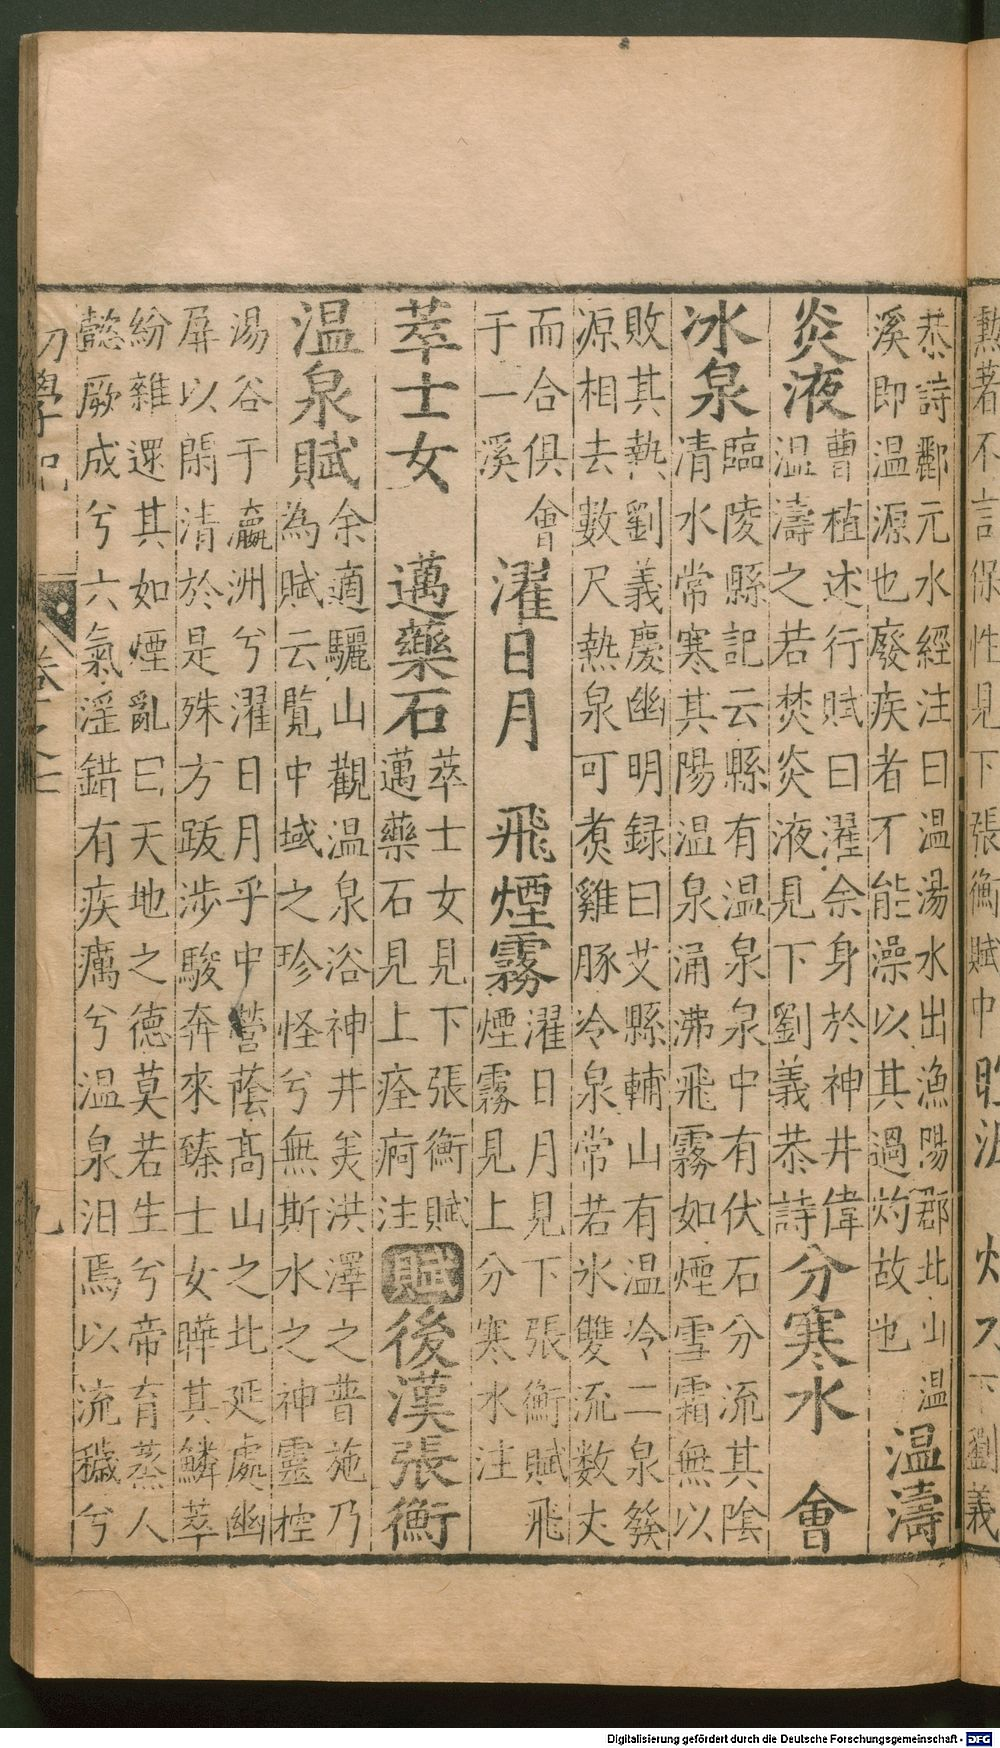 勲著不言保性見下張衡賦中
下劉義
恭詩酈元水經注曰温湯水出漁陽郡北山温
溪即温源也廢疾者不能澡以其過灼故也
温濤
炎液
曹植述行賦曰濯余身於神井偉
温濤之若焚炎液見下劉義恭詩
分寒水 會
冰泉
臨陵縣記云縣有温泉泉中有伏石分流其陰
清水常寒其陽温泉涌沸飛霧如煙雪霜無以
敗其熱劉義慶幽明録曰艾縣輔山有温冷二泉發
源相去數尺熱泉可煮雞豚冷泉常若氷雙流数丈
而合俱會
于一溪
濯日月 飛煙霧
濯日月見下張衡賦飛
煙霧見上分寒水注
萃士女 邁藥石
萃士女見下張衡賦
邁藥石見上痊痾注
賦
後漢張衡
温泉賦
余適驪山觀温泉浴神井羙洪澤之普施乃
為賦云覧中域之珍怪兮無斯水之神靈控
湯谷于瀛洲兮濯日月乎中營蔭髙山之北延處幽
屏以閑清於是殊方跋涉駿奔來臻士女曄其鱗萃
紛雜還其如煙亂曰天地之德莫若生兮帝育蒸人
懿厥成兮六氣淫錯有疾癘兮温泉汨焉以流穢兮
初學記
卷之七
九
Digitalisierung gefördert durch die Deutsche Forschungsgemeinschaft - DFG